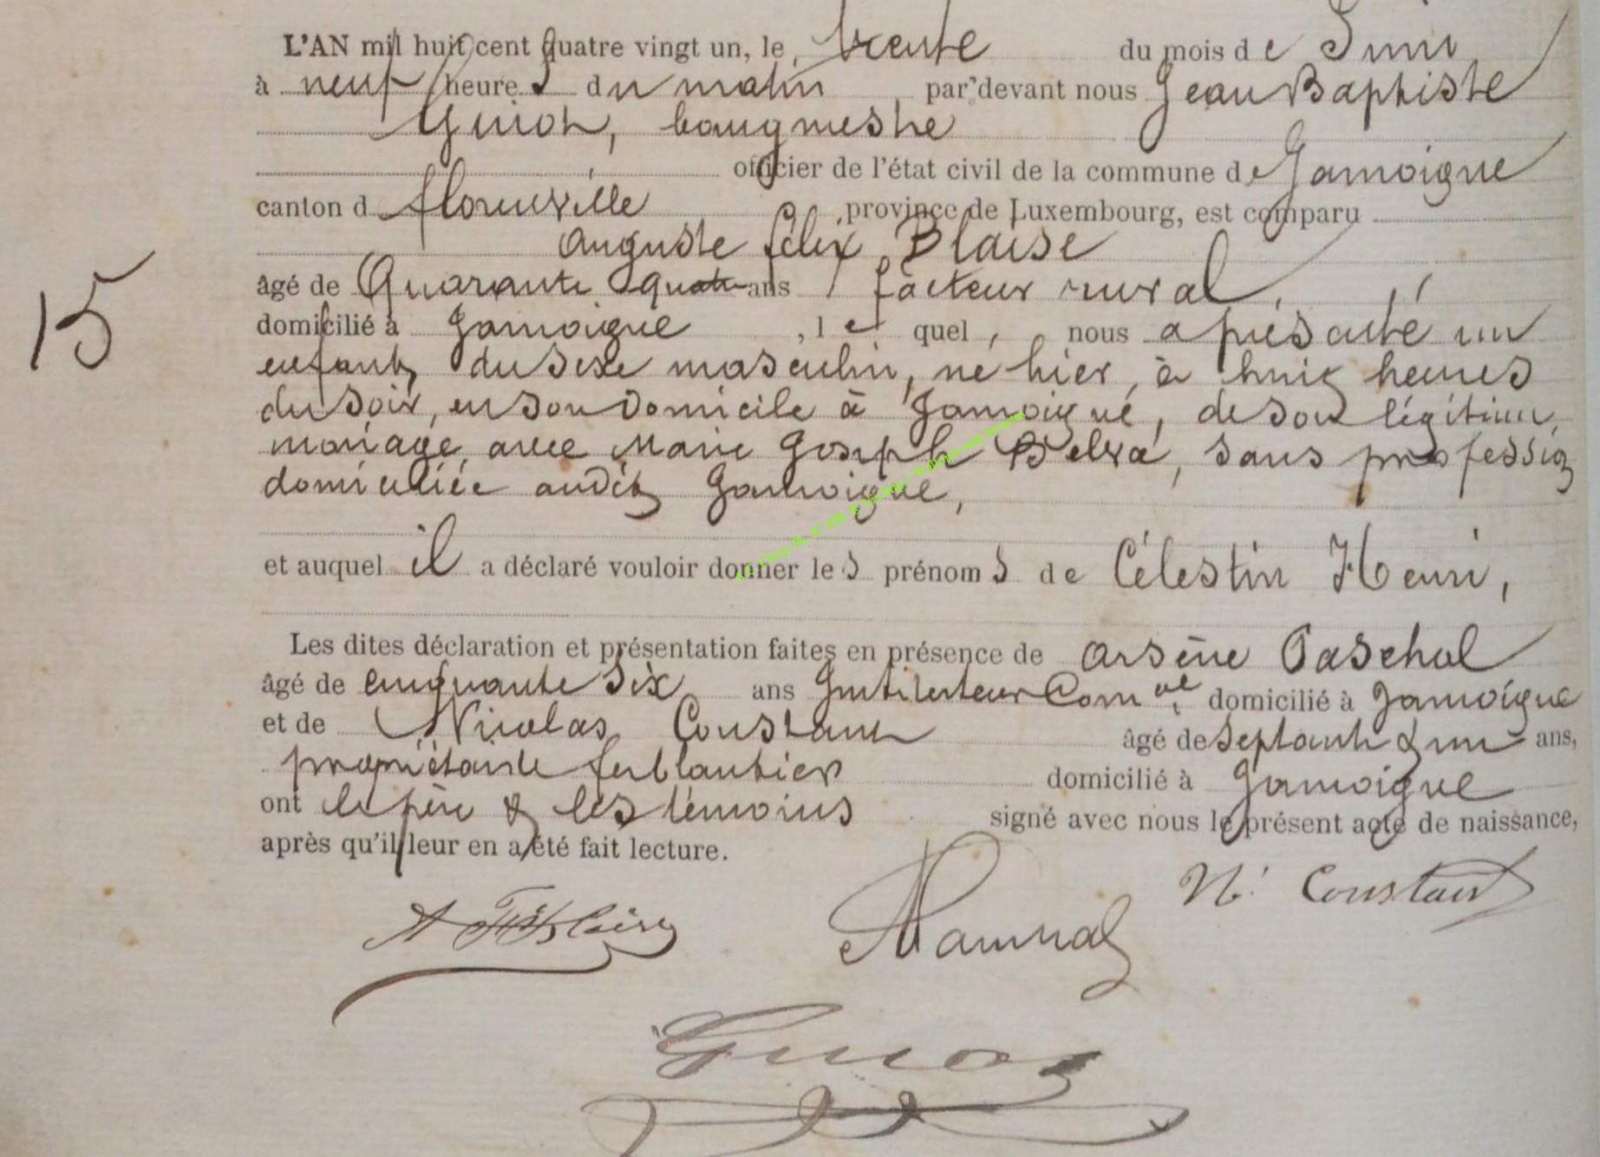 L'AN mil huit cent quatre vingt un, le trente du mois de Juin
à neuf heures du matin, par devant nous Jean Baptiste
Guiot, bourgmestre
officier de l'état civil de la commune de Jamoigne
canton d florenville province de Luxembourg, est comparu
auguste félix Blaise
âgé de Quarante quatre ans, facteur rural,
domicilié à Jamoigne, lequel, nous a présenté un
enfant, du sexe masculin, né hier, à huit heures
du soir, en son domicile à Jamoigne, de son légitime
mariage, avec Marie Joseph, sans profession
domiciliée audit Jamoigne,
et auquel il a déclaré vouloir donner les prénoms de Célestin Henri,
Les dites déclaration et présentation faites en présence de arsène Paschal
âgé de cinquante six ans Instituteur Com.al domicilié à Jamoigne
et de Nicolas Constant âgé de septante & un ans,
propriétaire ferblantier domicilié à Jamoigne
ont le père & les témoins signé avec nous le présent acte de naissance,
après qu'il leur en a été fait lecture.
15
N. Constant
Guiot